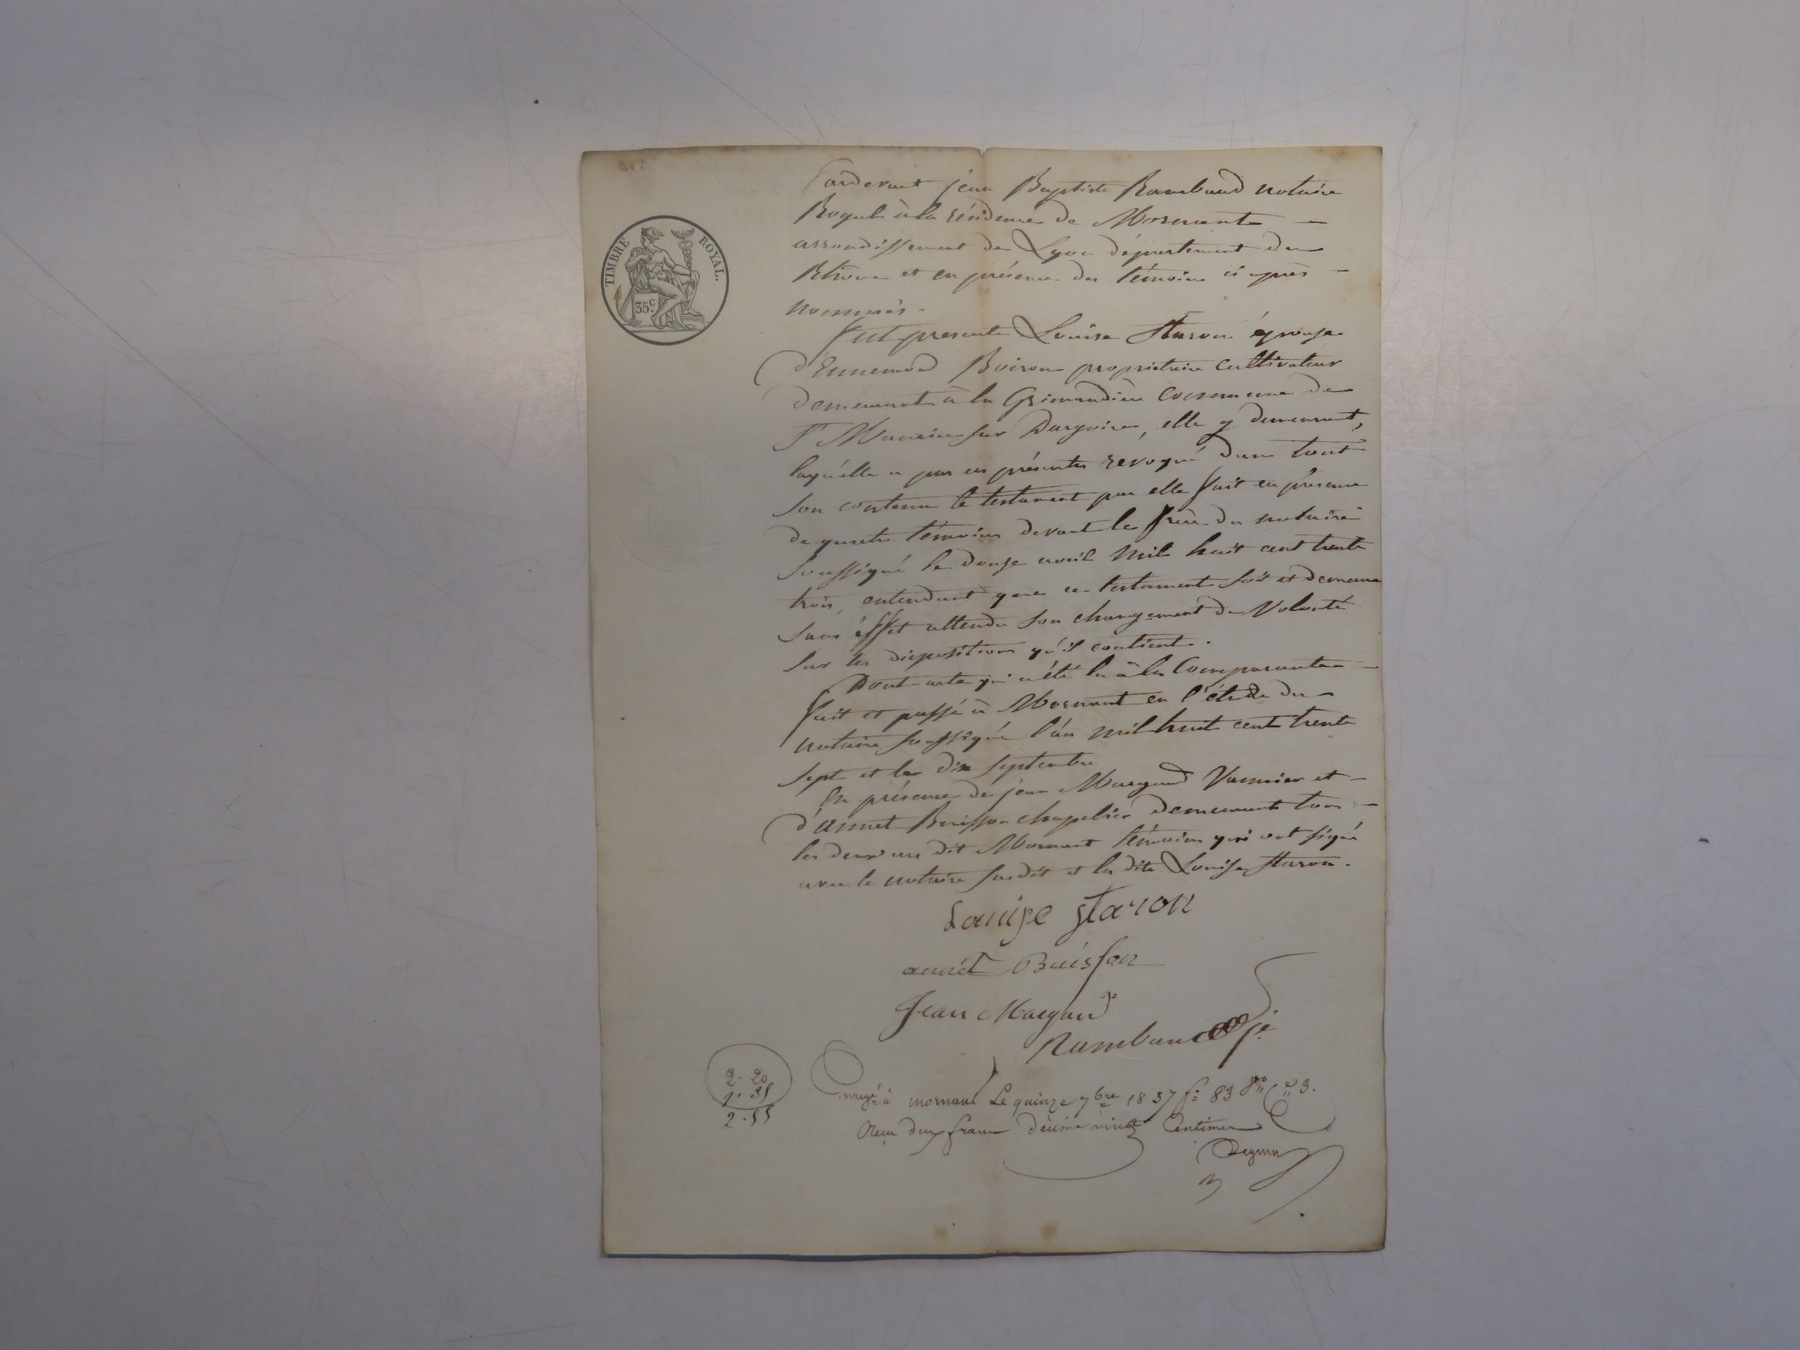 TIMBRE ROYAL.
35 c.
Pardevant jean Baptiste Rambaud notaire
Royal à la résidence de Mornant
arrondissement de Lyon département du
Rhône et en présence des témoins ci après
nommés.
Fut presente Louise Staron épouse
d'Ennemond Boiron propriétaire cultivateur
demeurant à la Grimaudière commune de
St Maurice sur Dargoire, elle y demeurant,
laquelle a par ces présentes revoqué dans tout
son contenu le testament par elle fait en présence
de quatre témoins devant le frère du notaire
soussigné le douze avril mil huit cent trente
trois, entendant que ce testament soit et demeure
sans éffet attendu son changement de volonté
sur les dispositions qu'il contient.
Dont acte qui a été lu à la Comparante
fait et passé à Mornant en l'étude du
notaire soussigné l'an mil huit cent trente
sept et le dix septembre
En présence de jean Margand Vannier et
d'annet Buisson chapelier demeurants tous
les deux au dit Mornant témoins qui ont signé
avec le notaire susdit et la dite Louise Staron.
Louise Staron
annet Buisson
Jean Margand
Rambaud je
2. 20
1. 35
2. 55
Enregé à mornant Le quinze 7bre 1837 f° 83 Ro C 3.
Reçu deux francs décime vingt Centimes